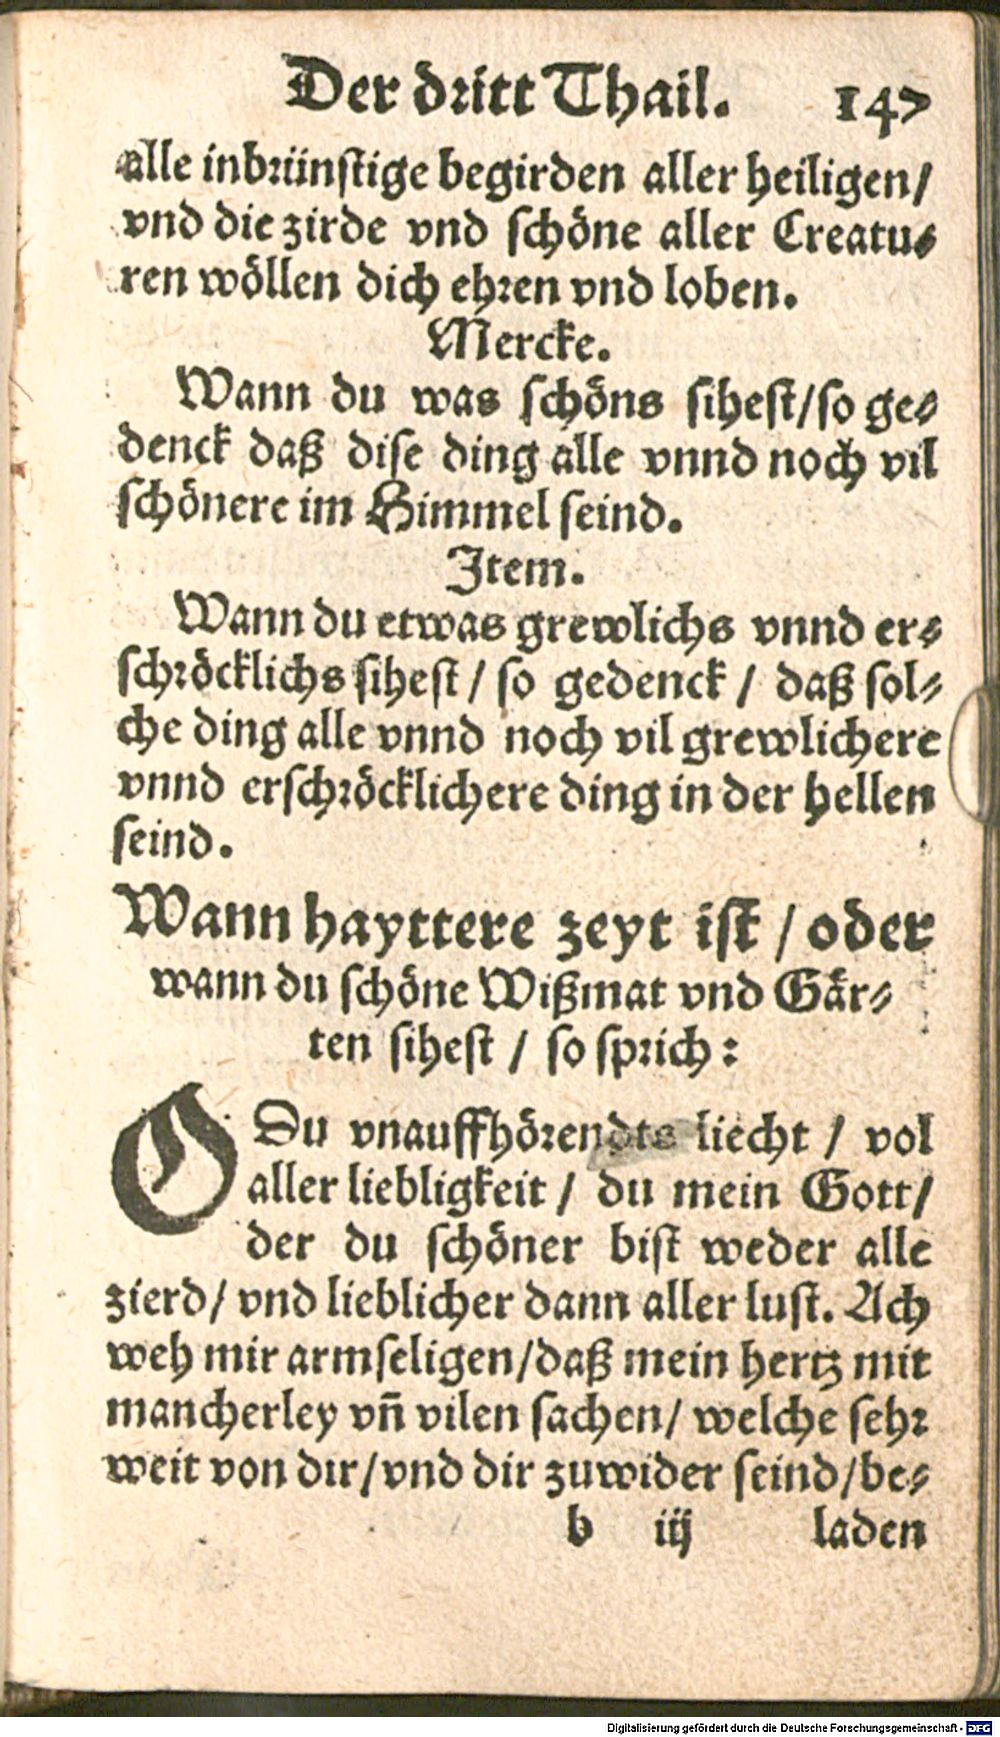 Der dritt Thail. 147
alle inbrünstige begirden aller heiligen/
vnd die zirde vnd schöne aller Creatu-
ren wöllen dich ehren vnd loben.
Mercke.
Wann du was schöns sihest/so ge-
denck daß dise ding alle vnnd noch vil
schönere im Himmel seind.
Item.
Wann du etwas grewlichs vnnd er-
schröcklichs sihest / so gedenck / daß sol-
che ding alle vnnd noch vil grewlichere
vnnd erschröcklichere ding in der hellen
seind.
Wann hayttere zeyt ist / oder
wann du schöne Wißmat vnd Gär-
ten sihest / so sprich:
O Du vnauffhörendts liecht / vol
aller liebligkeit / du mein Gott/
der du schöner bist weder alle
zierd/ vnd lieblicher dann aller lust. Ach
weh mir armseligen/daß mein hertz mit
mancherley vn̄ vilen sachen/ welche sehr
weit von dir/vnd dir zuwider seind/be-
b iij laden
Digitalisierung gefördert durch die Deutsche Forschungsgemeinschaft - DFG